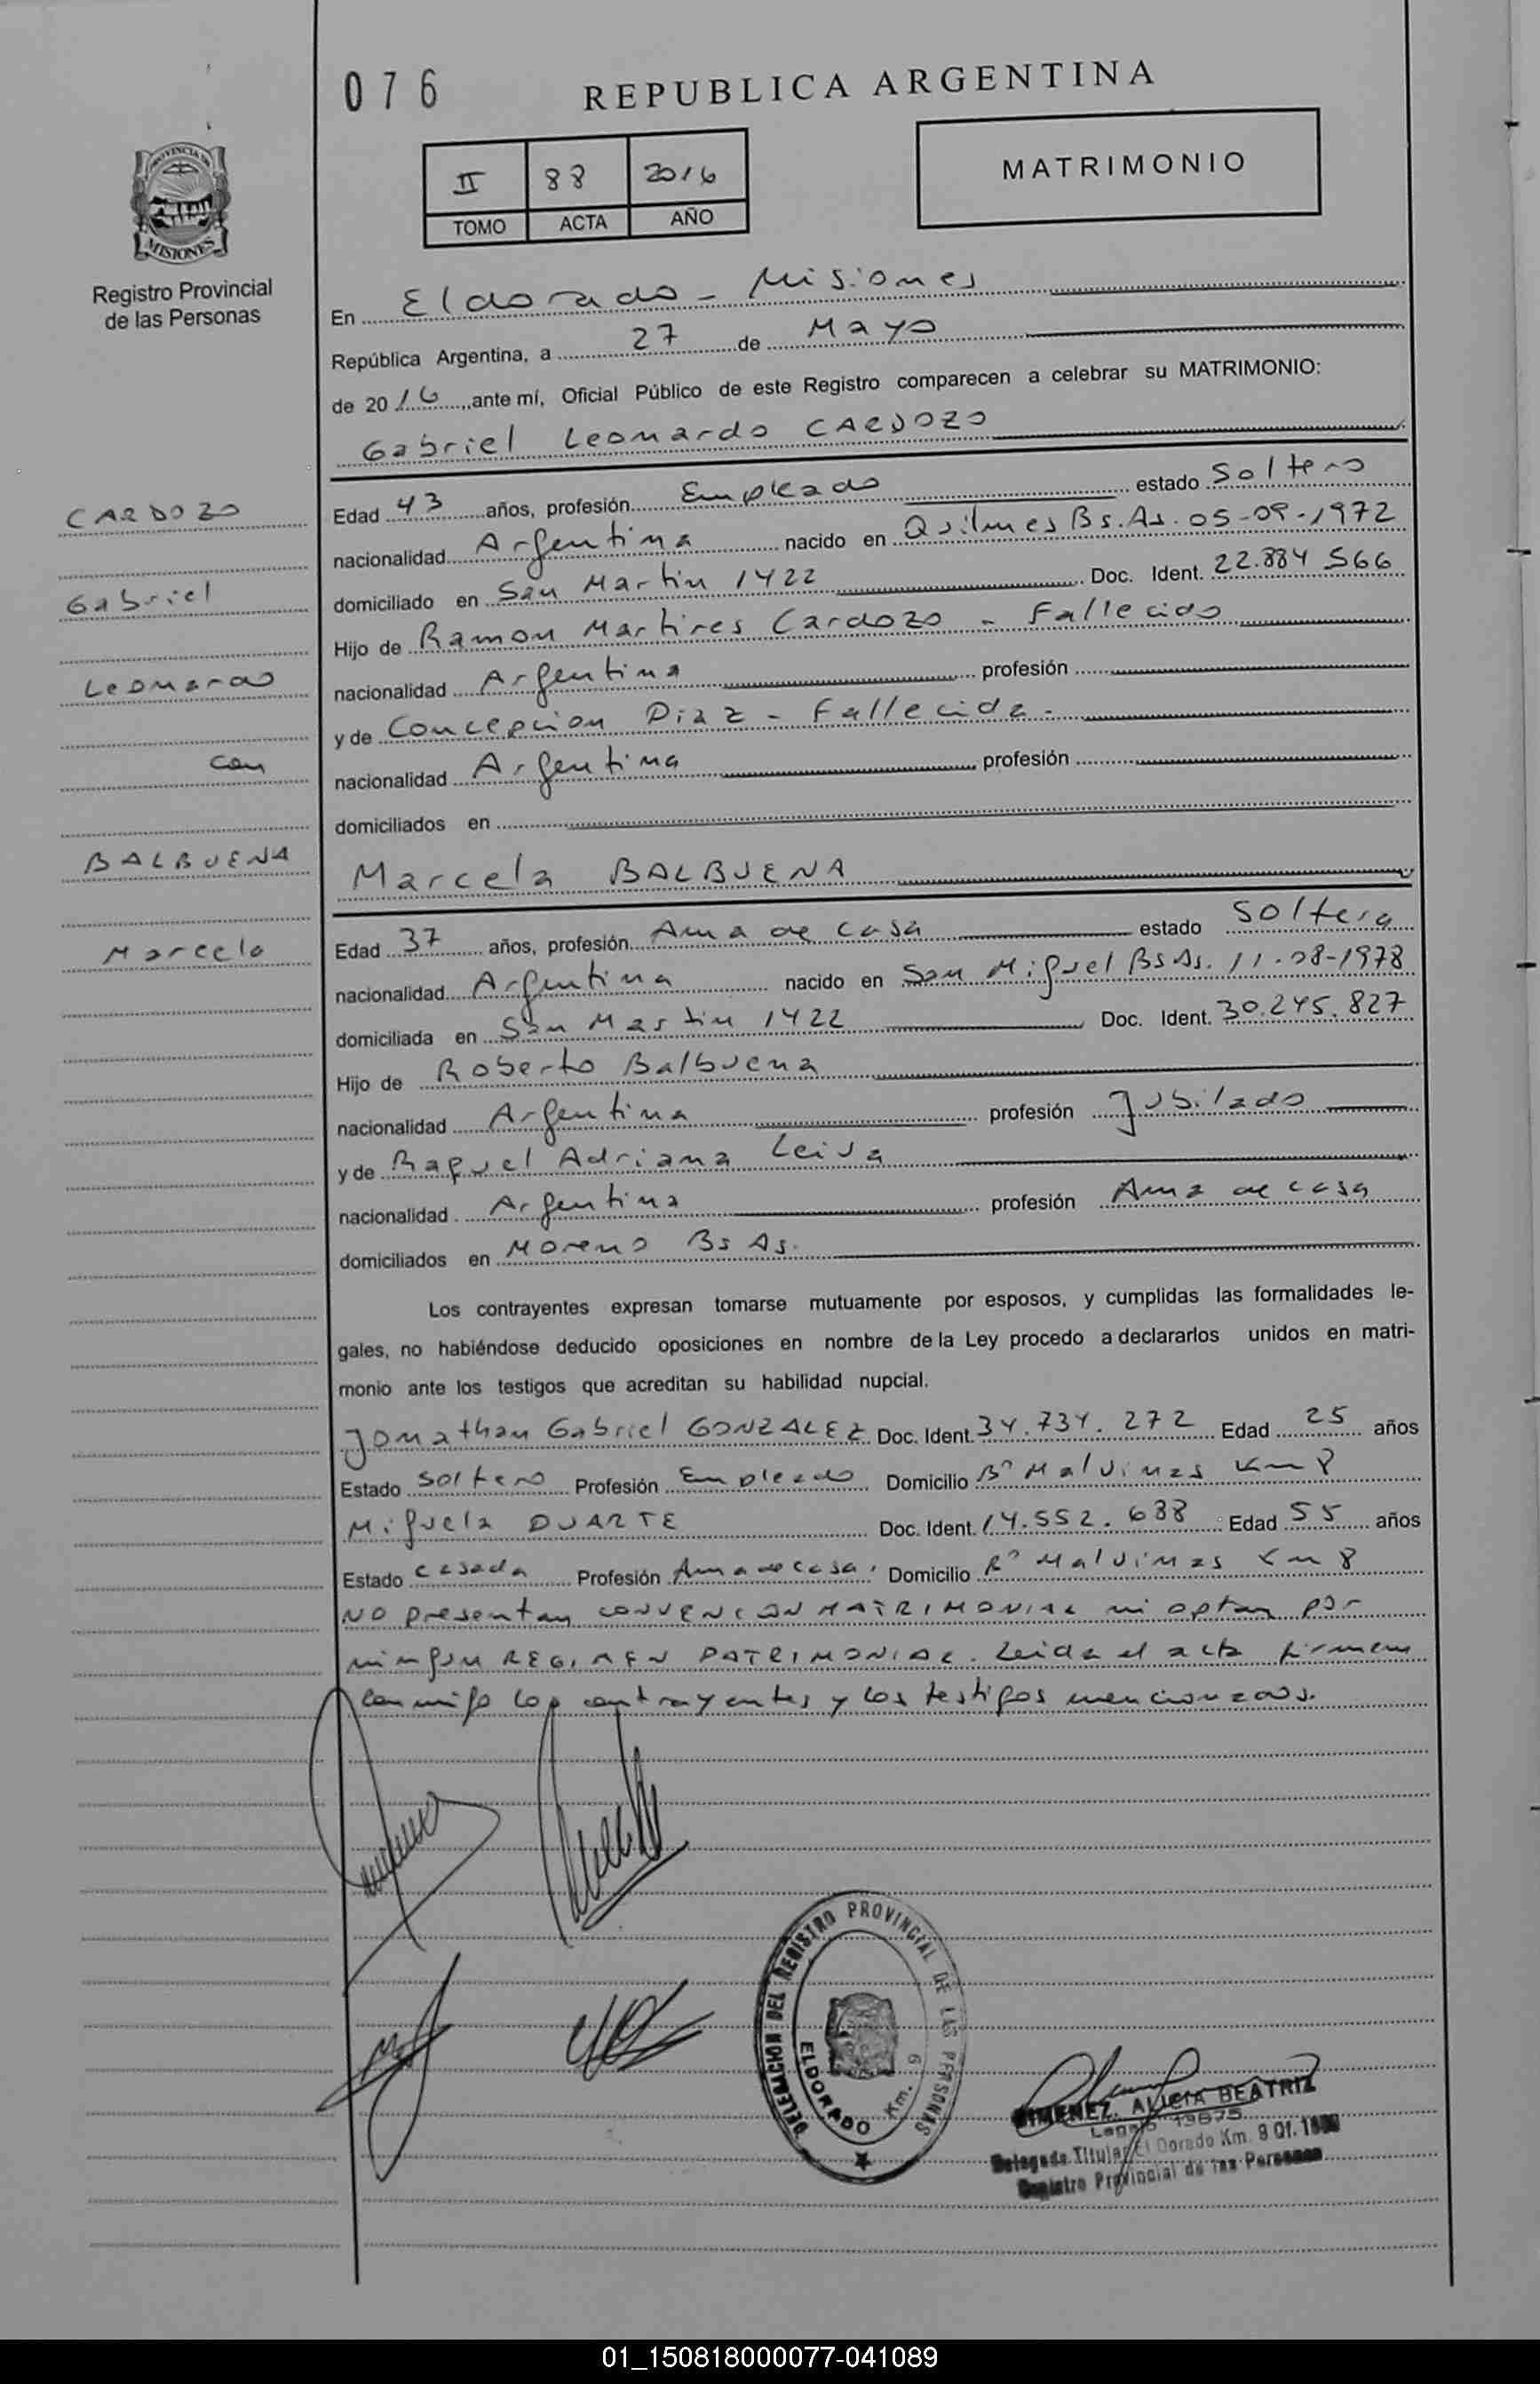 076
REPUBLICA ARGENTINA
II 88 2016
TOMO ACTA AÑO
MATRIMONIO
PROVINCIA DE
MISIONES
Registro Provincial
de las Personas
En Eldorado - Misiones
República Argentina, a 27 de Mayo
de 2016, ante mí, Oficial Público de este Registro comparecen a celebrar su MATRIMONIO:
Gabriel Leonardo CARDOZO
CARDOZO
Gabriel
Leonardo
con
BALBUENA
Marcela
Edad 43 años, profesión Empleado estado Soltero
nacionalidad Argentina nacido en Quilmes Bs.As. 05-09-1972
domiciliado en San Martin 1422 Doc. Ident. 22.884.566
Hijo de Ramon Martires Cardozo - Fallecido
nacionalidad Argentina profesión
y de Concepcion Diaz - Fallecida -
nacionalidad Argentina profesión
domiciliados en
Marcela BALBUENA
Edad 37 años, profesión Ama de casa estado Soltera
nacionalidad Argentina nacido en San Miguel Bs As. 11-08-1978
domiciliada en San Martin 1422 Doc. Ident. 30.245.827
Hijo de Roberto Balbuena
nacionalidad Argentina profesión Jubilado
y de Raquel Adriana Leiva
nacionalidad Argentina profesión Ama de casa
domiciliados en Moreno Bs As.
Los contrayentes expresan tomarse mutuamente por esposos, y cumplidas las formalidades le-
gales, no habiéndose deducido oposiciones en nombre de la Ley procedo a declararlos unidos en matri-
monio ante los testigos que acreditan su habilidad nupcial.
Jonathan Gabriel GONZALEZ Doc. Ident. 34.734.272 Edad 25 años
Estado soltero Profesión Empleado Domicilio Bº Malvinas Km 8
Miguela DUARTE Doc. Ident. 14.552.638 Edad 55 años
Estado casada Profesión Ama de casa. Domicilio Bº Malvinas Km 8
NO presentan CONVENCION MATRIMONIAL ni optan por
ningun REGIMEN PATRIMONIAL. Leida el acta firman
conmigo los contrayentes y los testigos mencionados.
DELEGACION DEL REGISTRO PROVINCIAL DE LAS PERSONAS
ELDORADO Km.
GIMENEZ, ALICIA BEATRIZ
Delegada Titular El Dorado Km. 9 Of.
Registro Provincial de las Personas
01_150818000077-041089